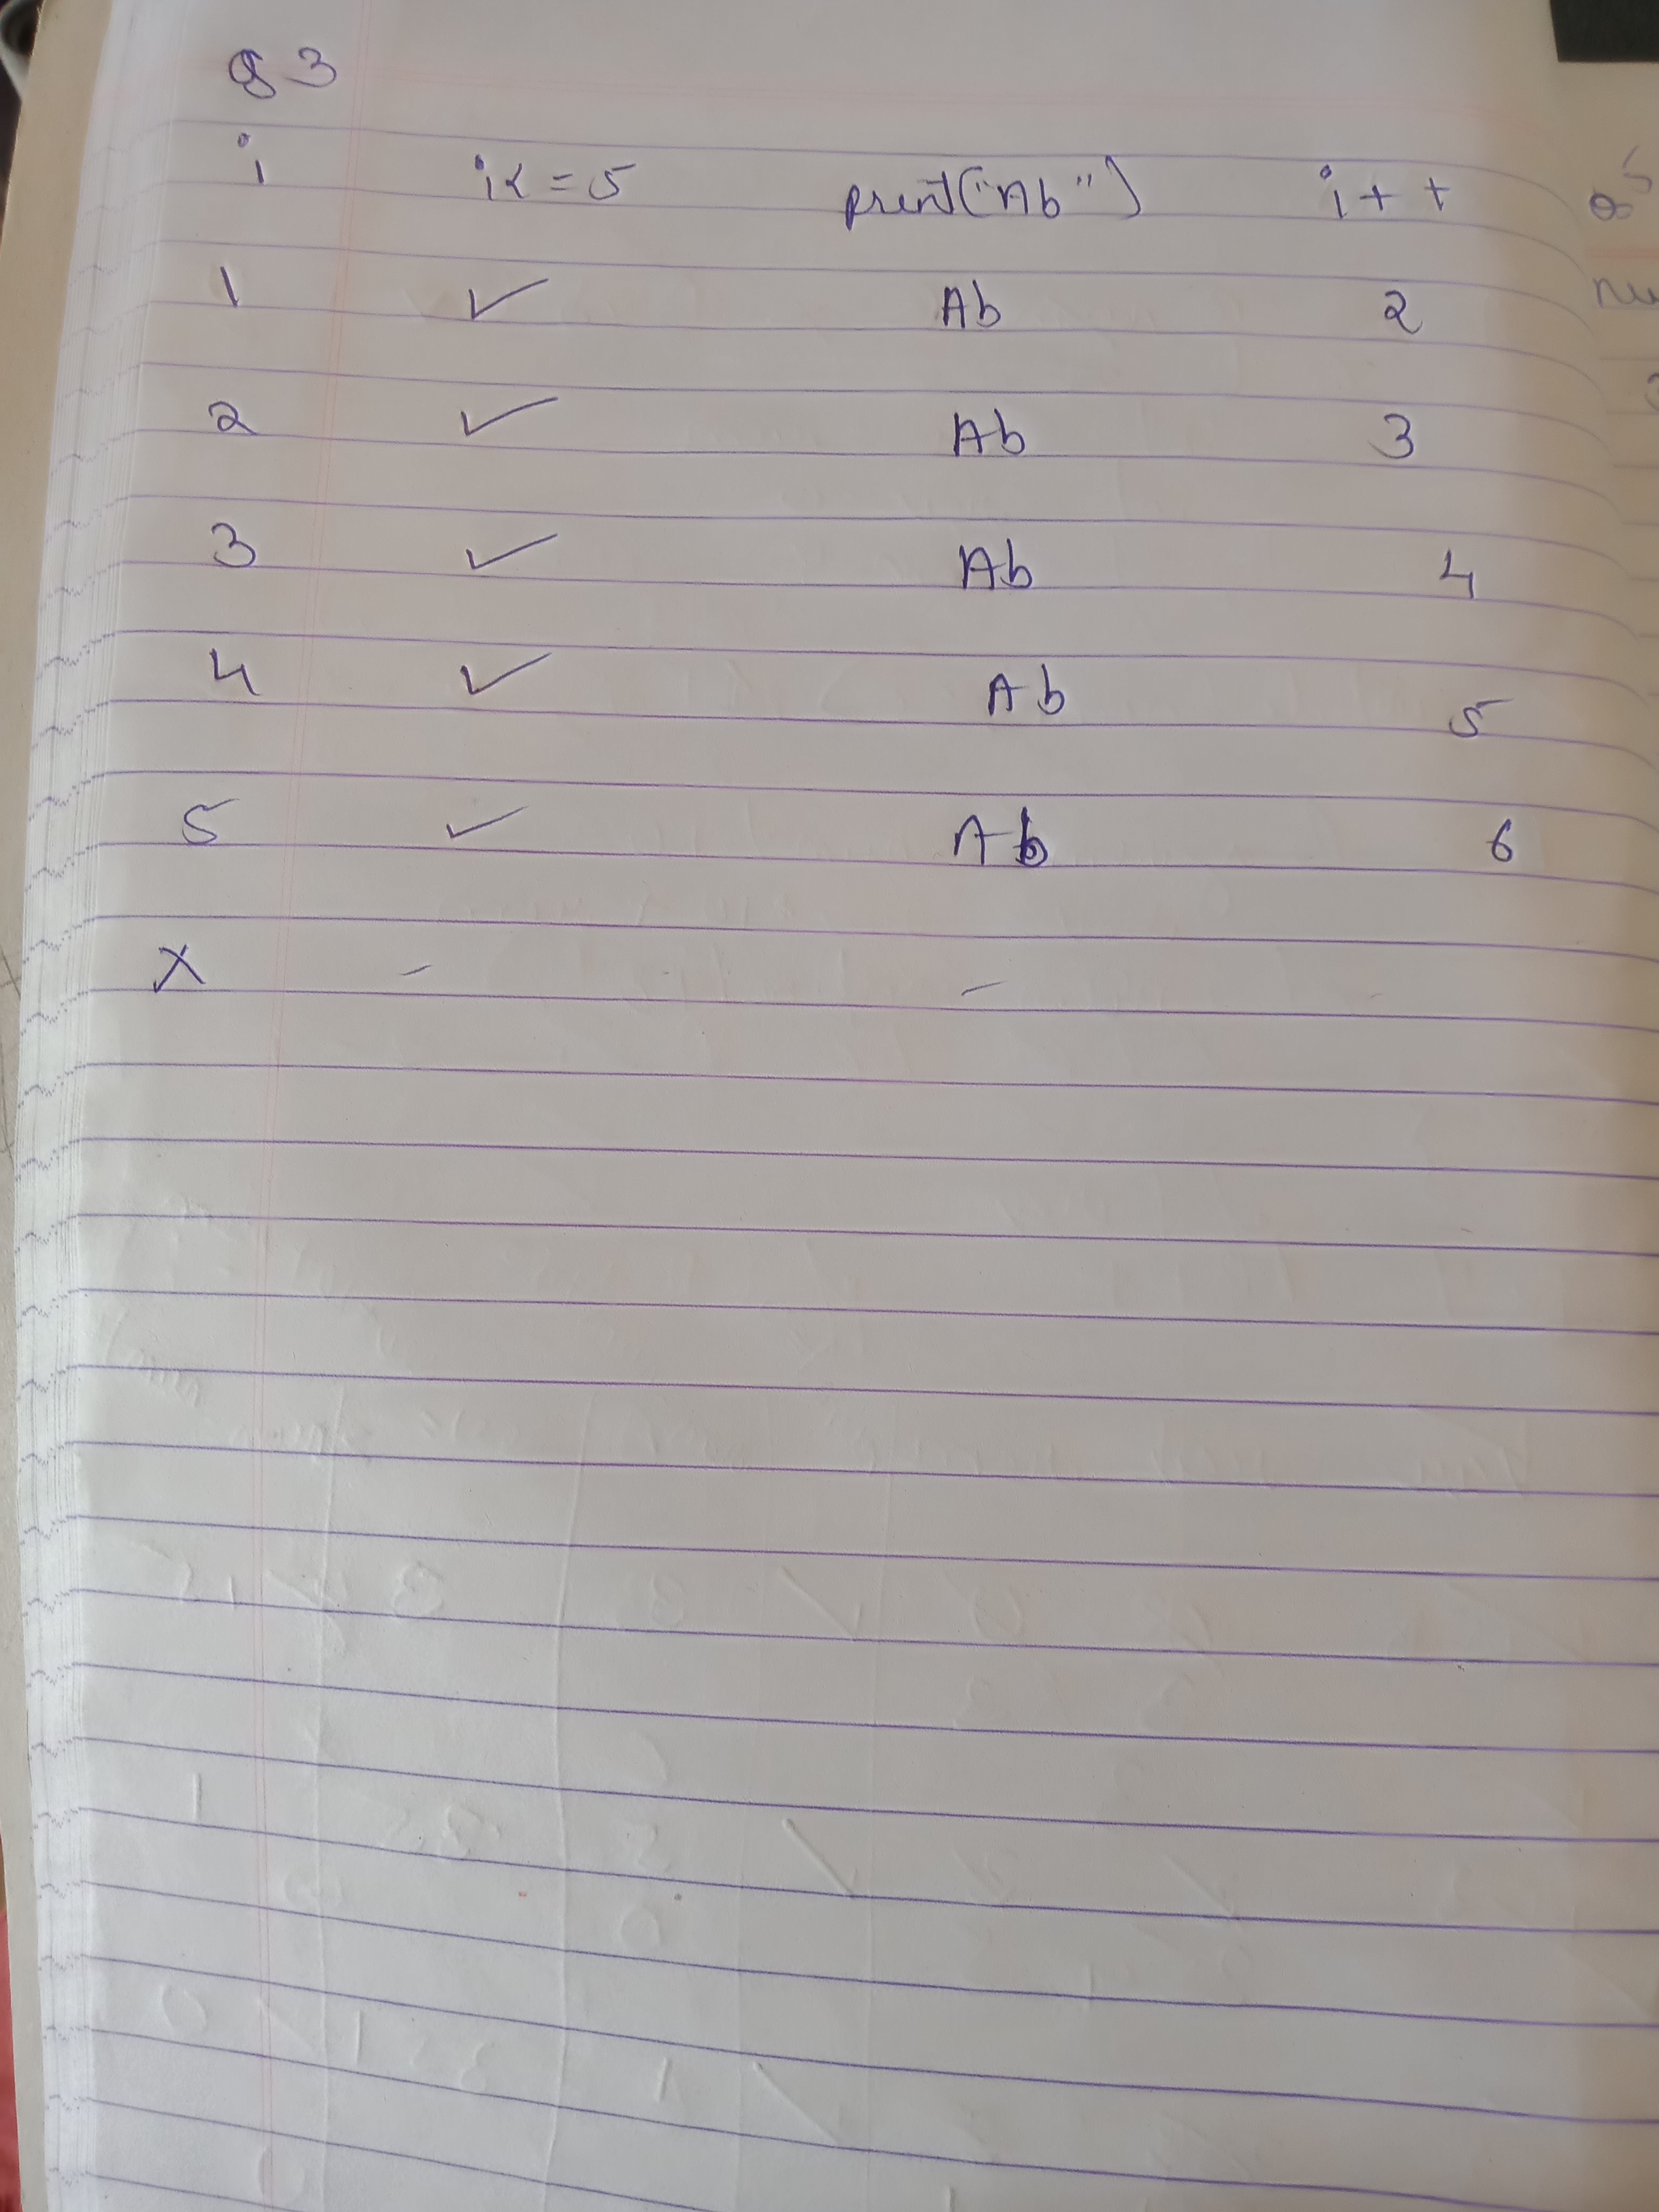 Q 3
i i<=5 print("Ab") i++
1 ✓ Ab 2
2 ✓ Ab 3
3 ✓ Ab 4
4 ✓ Ab 5
5 ✓ Ab 6
X - -